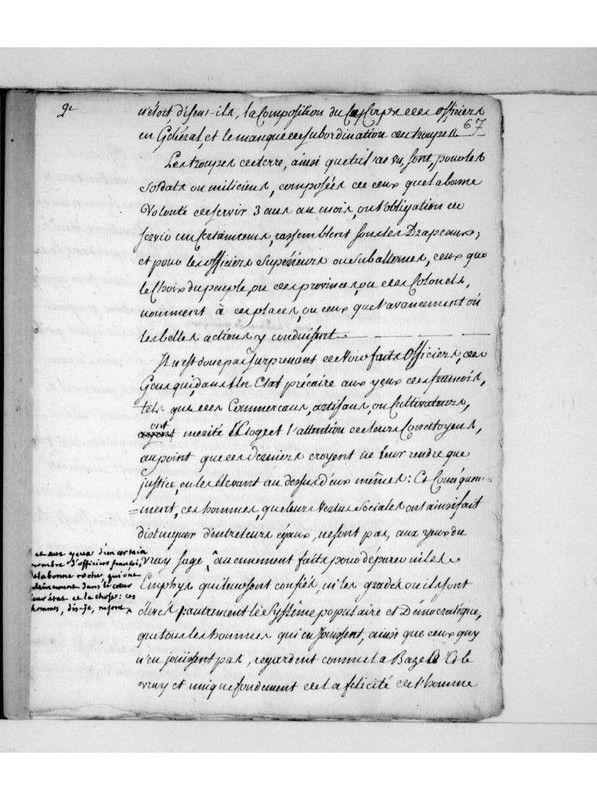 2e
67
n'étoit disent-ils, la Composition du Corps des officiers
en Général, et le manque de Subordination des troupes.
Les troupes de terre, ainsi que font, pour les
Soldats ou miliciens, composées de ceux que la bonne
Volonté de servir 3 ans au moins, ou l'obligation de
servir un certain tems, rassemblent sous les Drapeaux;
et pour les officiers Supérieurs ou Subalternes, ceux que
le Choix du peuple, ou des provinces, ou des Colonels,
nomment à ces places, ou ceux que l'avancement ou
les belles actions y conduisent.
Il n'est donc pas Surprenant de voir faits Officiers, des
Gens qui, dans un Etat précaire aux yeux des francois,
tels que des Commercans, artisans, ou Cultivateurs,
ont
mérité l'Eloge et l'attention de leurs Concitoyens,
au point que ces derniers croyent ne leur rendre que
justice, en les Elevant au dessus d'eux mêmes: Et Conséquem=
=ment, ces hommes, que leurs Vertus Sociales ont ainsi fait
distinguer d'entre leurs égaux, ne sont pas, aux yeux du
vray Sage, aucunement faits pour déparer ni les
Employs qui leur sont confiés, ni les grades ou ils sont
élevés par autrement le Systême populaire et Démocratique,
que tous les hommes qui en jouissent, ainsi que ceux qui
n'en jouissent pas, regardent comme la Baze et le
vray et unique fondement de la félicité de l'homme
et aux yeux d'un certain
nombre d'officiers francais,
de la bonne roche, qui ont
dans le cœur
leur état et la chose: ces
hommes, dis-je, ne font